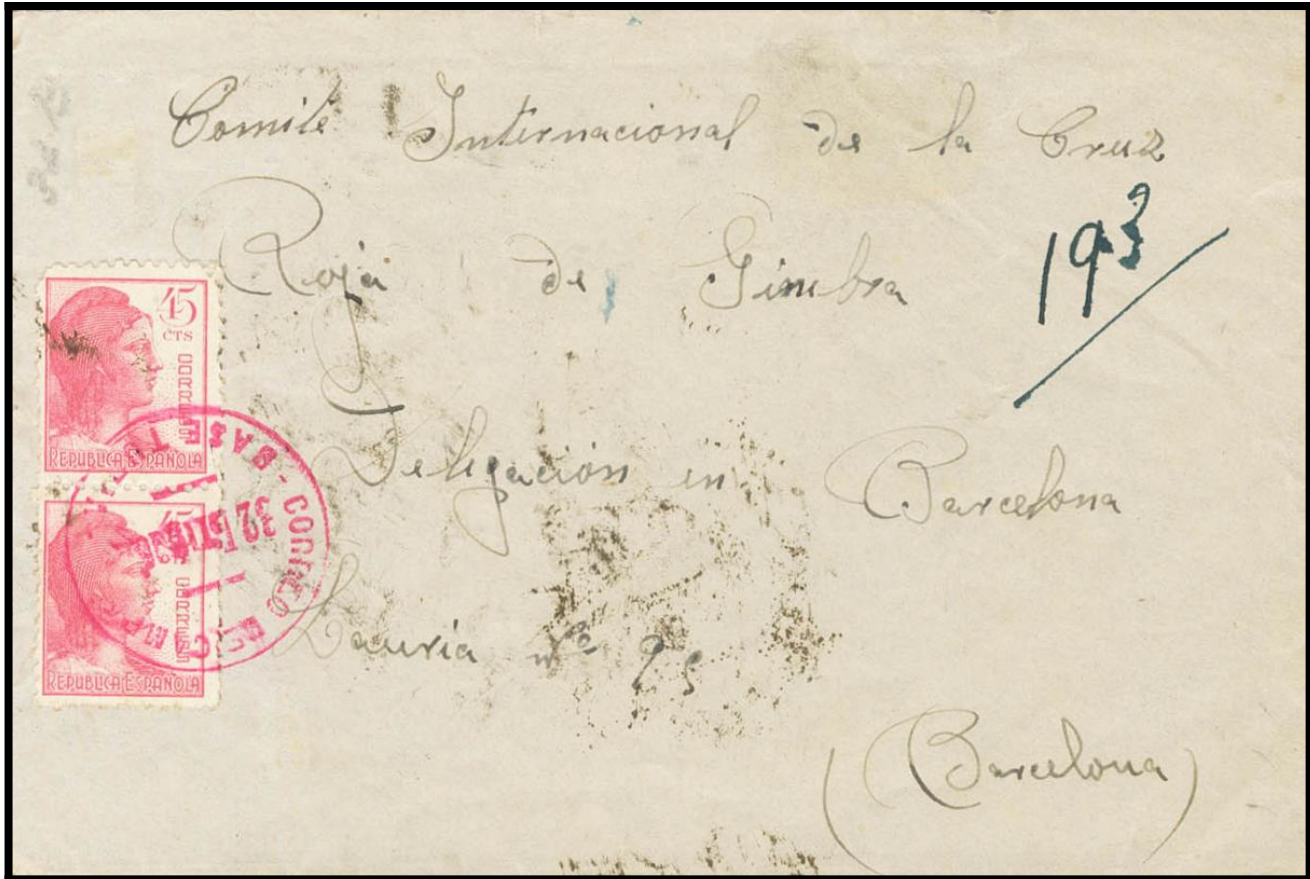 Comité Internacional de la Cruz
Roja de Ginebra
193
Delegación en Barcelona
Lauria nº 95
(Barcelona)
45
CTS
CORREOS
REPUBLICA ESPAÑOLA
45
CORREOS
REPUBLICA ESPAÑOLA
CORREO DE CAMPAÑA
BASE